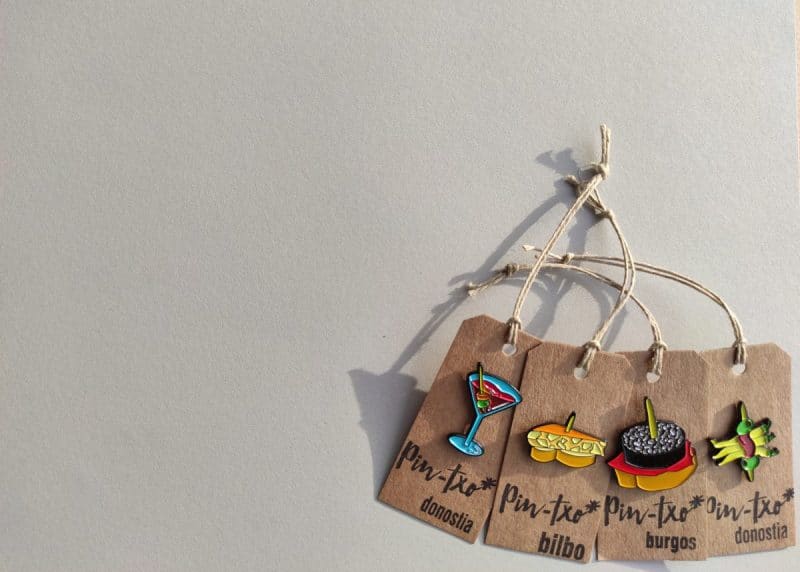 Pin-txo*
donostia
Pin-txo*
bilbo
Pin-txo*
burgos
Pin-txo*
donostia